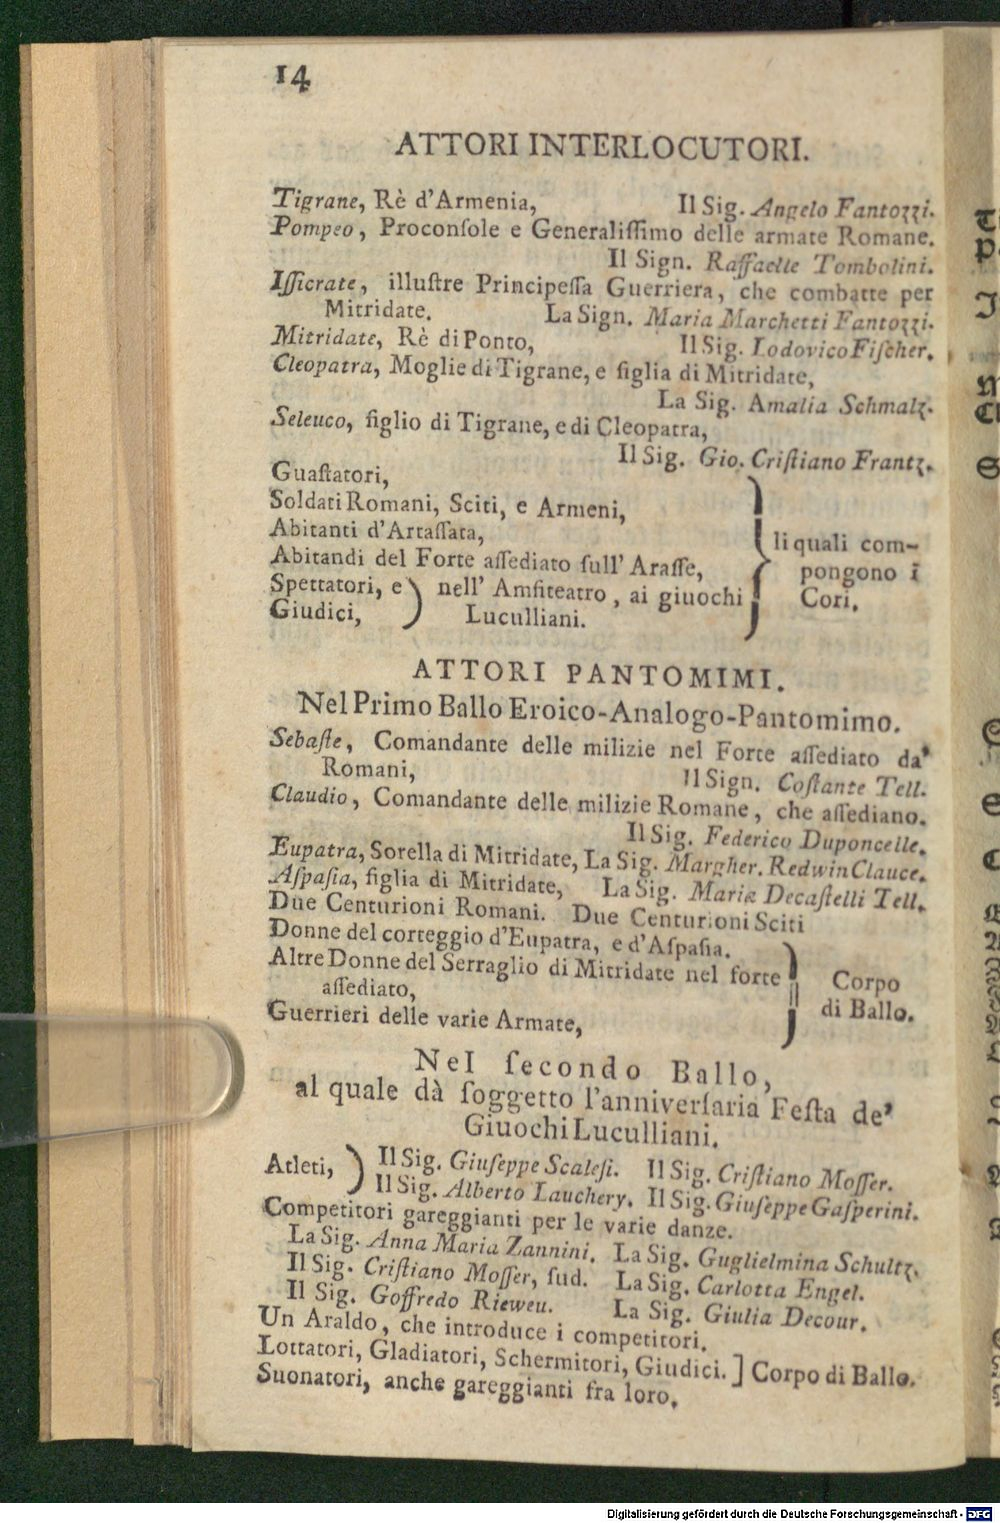 14
ATTORI INTERLOCUTORI.
Tigrane, Rè d'Armenia, Il Sig. Angelo Fantozzi.
Pompeo, Proconſole e Generaliſſimo delle armate Romane.
Il Sign. Raffaelle Tombolini.
Iſſicrate, illuſtre Principeſſa Guerriera, che combatte per
Mitridate. La Sign. Maria Marchetti Fantozzi.
Mitridate, Rè di Ponto, Il Sig. Lodovico Fiſcher.
Cleopatra, Moglie di Tigrane, e figlia di Mitridate,
La Sig. Amalia Schmalz.
Seleuco, figlio di Tigrane, e di Cleopatra,
Il Sig. Gio. Criſtiano Frantz.
Guaſtatori,
Soldati Romani, Sciti, e Armeni,
Abitanti d'Artaſſata,
Abitandi del Forte aſſediato ſull' Araſſe,
Spettatori, e nell' Amfiteatro, ai giuochi
Giudici, Luculliani.
li quali com-
pongono i
Cori.
ATTORI PANTOMIMI.
Nel Primo Ballo Eroico-Analogo-Pantomimo.
Sebaſte, Comandante delle milizie nel Forte aſſediato da'
Romani, Il Sign. Coſtante Tell.
Claudio, Comandante delle milizie Romane, che aſſediano.
Il Sig. Federico Duponcelle.
Eupatra, Sorella di Mitridate, La Sig. Margher. Redwin Clauce.
Aſpaſia, figlia di Mitridate, La Sig. Maria Decaſtelli Tell.
Due Centurioni Romani. Due Centurioni Sciti
Donne del corteggio d'Eupatra, e d'Aſpaſia.
Altre Donne del Serraglio di Mitridate nel forte
aſſediato,
Guerrieri delle varie Armate,
Corpo
di Ballo.
Nel ſecondo Ballo,
al quale dà ſoggetto l'anniverſaria Feſta de'
Giuochi Luculliani.
Atleti, ) Il Sig. Giuſeppe Scaleſi. Il Sig. Criſtiano Moſſer.
Il Sig. Alberto Lauchery. Il Sig. Giuſeppe Gaſperini.
Competitori gareggianti per le varie danze.
La Sig. Anna Maria Zannini. La Sig. Guglielmina Schultz.
Il Sig. Criſtiano Moſſer, ſud. La Sig. Carlotta Engel.
Il Sig. Goffredo Rieweu. La Sig. Giulia Decour.
Un Araldo, che introduce i competitori.
Lottatori, Gladiatori, Schermitori, Giudici. ] Corpo di Ballo.
Suonatori, anche gareggianti fra loro.
Digitalisierung gefördert durch die Deutsche Forschungsgemeinschaft - DFG